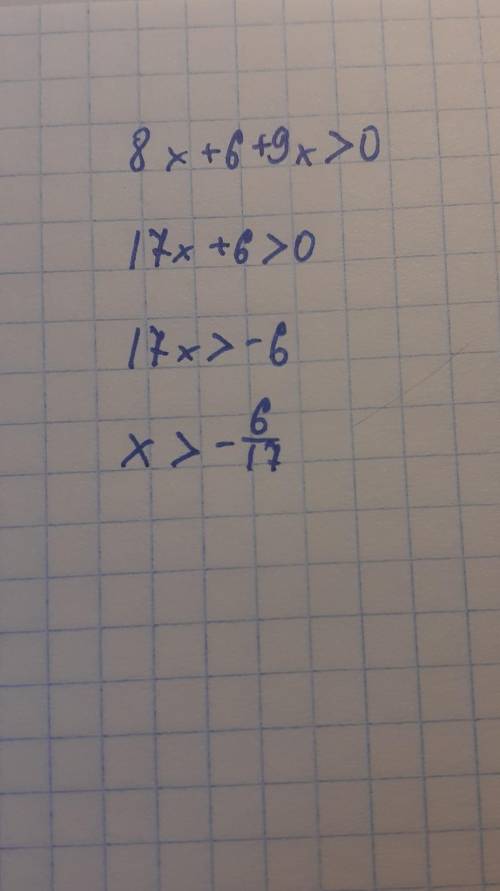 8x+6+9x>0
17x+6>0
17x>-6
x>-6/17